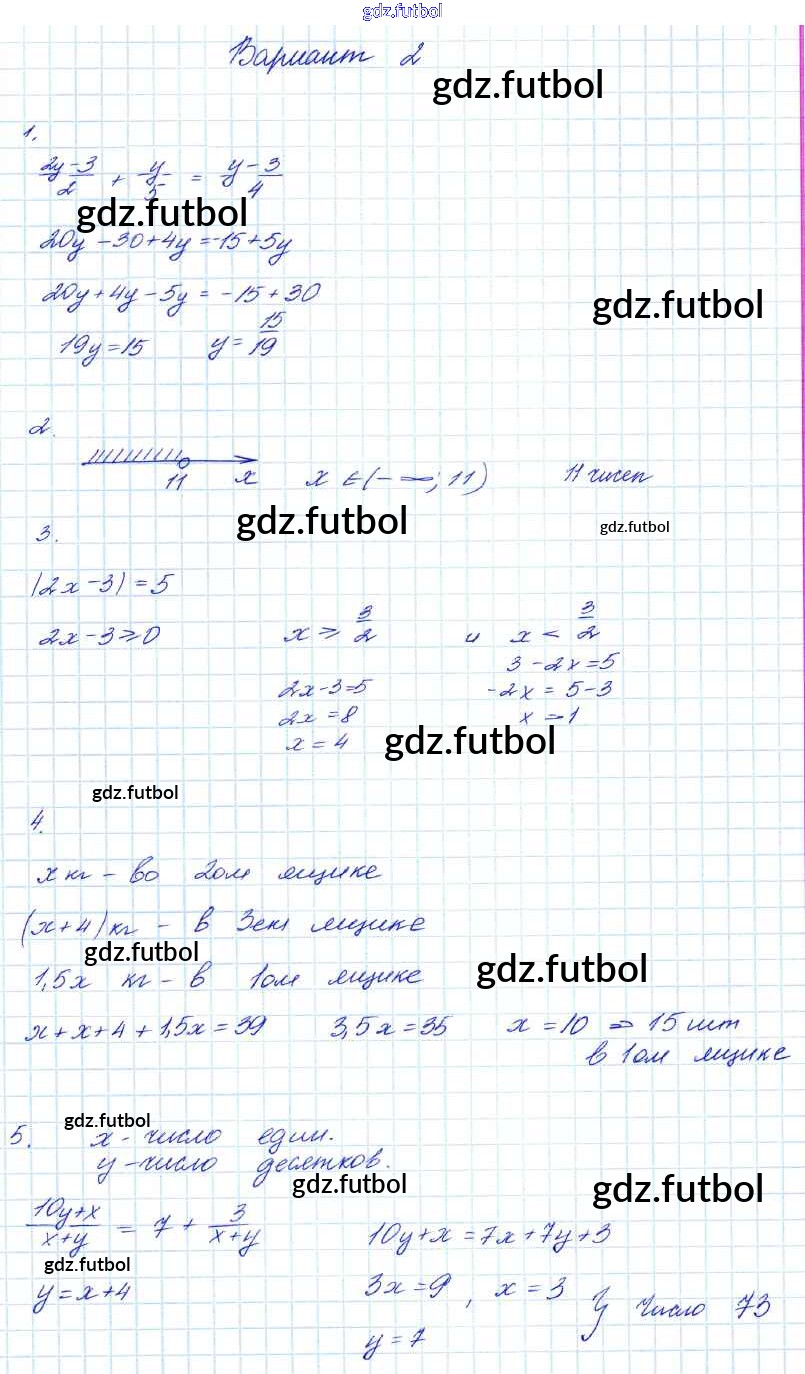 gdz.futbol
Вариант 2
gdz.futbol
1.
(2y-3)/2 + y/5 = (y-3)/4
gdz.futbol
20y - 30 + 4y = -15 + 5y
20y + 4y - 5y = -15 + 30
gdz.futbol
19y = 15 y = 15/19
2.
11 x x ∈ (-∞; 11) 11 чисел
gdz.futbol
gdz.futbol
3.
|2x - 3| = 5
2x - 3 ≥ 0 x ≥ 3/2 и x < 3/2
3 - 2x = 5
2x - 3 = 5 -2x = 5 - 3
2x = 8 x = -1
x = 4
gdz.futbol
gdz.futbol
4.
x кг - во 2ом ящике
(x+4) кг - в 3ем ящике
gdz.futbol
1,5x кг - в 1ом ящике
gdz.futbol
x + x + 4 + 1,5x = 39 3,5x = 35 x = 10 ⇒ 15 шт
в 1ом ящике
gdz.futbol
5. x - число един.
y - число десятков.
gdz.futbol
gdz.futbol
(10y+x)/(x+y) = 7 + 3/(x+y) 10y + x = 7x + 7y + 3
gdz.futbol
y = x + 4 3x = 9, x = 3 } Число 73
y = 7